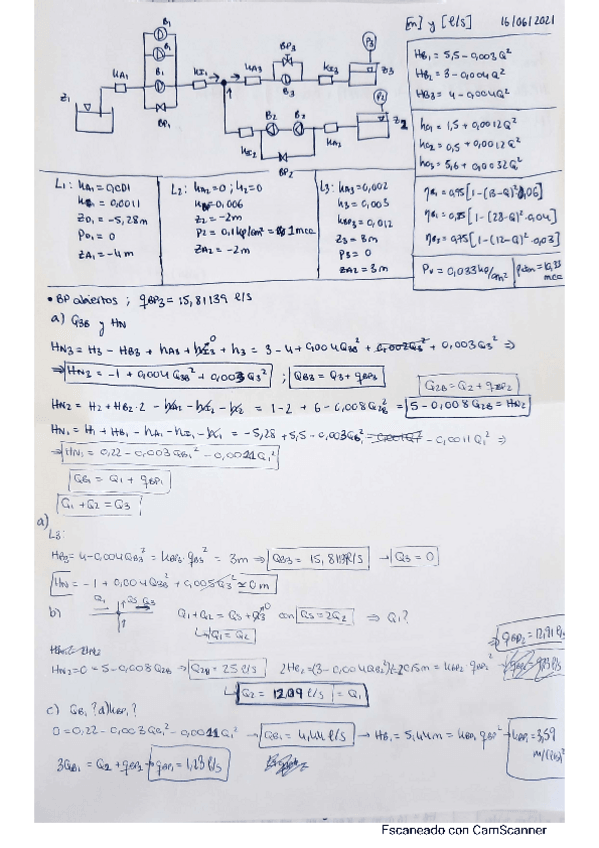 [m] y [l/s] 16/06/2021
B1
B1
B1
BP1
KA1
Z1
KI1
KA3
BP3
B3
KI3
P3
Z3
B2 B2
KI2
KA2
BP2
P2
Z2
HB1 = 5,5 - 0,003Q²
HB2 = 3 - 0,004Q²
HB3 = 4 - 0,004Q²
hC1 = 1,5 + 0,0012Q²
hC2 = 0,5 + 0,0012Q²
hC3 = 5,6 + 0,0032Q²
L1: KA1 = 0,001
= 0,0011
Z01 = -5,28m
P01 = 0
ZA1 = -4m
L2: KA2 = 0; K2 = 0
= 0,006
Z2 = -2m
P2 = 0,1 kg/cm² = 1 mca
ZA2 = -2m
L3: KA3 = 0,002
K3 = 0,003
KBP3 = 0,012
Z3 = 3m
P3 = 0
ZA2 = 3m
= 0,75[1-(13-Q)²·0,06]
[1-(28-Q)²·0,04]
= 0,75[1-(12-Q)²·0,03]
Pv = 0,033 kg/cm² = 10,33 mca
• BP abiertos; qBP3 = 15,81139 l/s
a) Q3B y HN
HN3 = H3 - HB3 + hA3 + hI3 + h3 = 3 - 4 + 0,004Q3B² + 0,002Q3² + 0,003Q3² ⇒
⇒ HN3 = -1 + 0,004Q3B² + 0,003Q3² ; QB3 = Q3 + qBP3
Q2B = Q2 + qBP2
HN2 = H2 + HB2·2 - hA2 - hI2 - h2 = 1 - 2 + 6 - 0,008Q2B² = 5 - 0,008Q2B² = HN2
HN1 = H1 + HB1 - hA1 - hI1 - h1 = -5,28 + 5,5 - 0,003QB1² - 0,0011Q1² ⇒
⇒ HN1 = 0,22 - 0,003QB1² - 0,0011Q1²
QB1 = Q1 + qBP1
Q1 + Q2 = Q3
a)
L3:
HB3 = 4 - 0,004QB3² = KBP3·qBP3² = 3m ⇒ QB3 = 15,811 l/s → Q3 = 0
HN = -1 + 0,004Q3B² + 0,005Q3² ≃ 0m
b) Q1 QS Q3 Q1 + Q2 = QS + Q3 con QS = 2Q2 ⇒ Q1?
↳ Q1 = Q2
HN2 = 0 = 5 - 0,008Q2B² ⇒ Q2B = 25 l/s 2HB2 = (3 - 0,004QB2²)·2 = 5m = KBP2·qBP2² ⇒ qBP2 = 12,91 l/s
↳ Q2 = 12,09 l/s = Q1
c) QB1? a) KBP1?
0 = 0,22 - 0,003QB1² - 0,0011Q1² → QB1 = 4,44 l/s → HB1 = 5,44m = KBP1·qBP1² → KBP1 = 3,59 m/(l/s)²
3QB1 = Q2 + qBP1 → qBP1 = 1,23 l/s
Escaneado con CamScanner